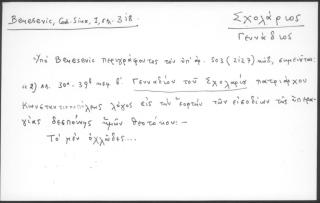 Benesevic, Cod. Sinai, I, σελ. 318. Σχολάριος
Γεννάδιος
Ὑπὸ Benesevic περιγράφοντος τὸν ὑπ' ἀρ. 503 (2127) κώδ. σημειοῦται:
«2) λλ. 30α - 39β τοῦ Γενναδίου τοῦ Σχολαρίου πατριάρχου
Κωνσταντινουπόλεως λόγος εἰς τὴν ἑορτὴν τῶν εἰσοδίων τῆς ὑπερα-
γίας δεσποίνης ἡμῶν Θεοτόκου:—
Τὸ μὲν ὀχλῶδες....